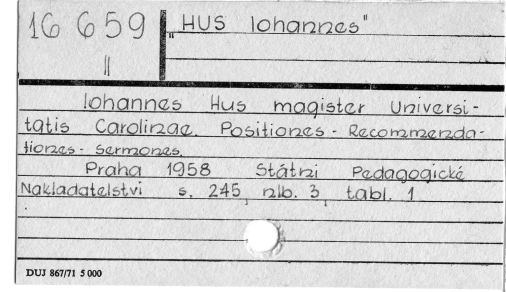 16 659
II
"HUS Iohannes"
Iohannes Hus magister Universi-
tatis Carolinae. Positiones - Recommenda-
tiones - sermones.
Praha 1958 Státni Pedagogické
Nakladatelstvi s. 245, nlb. 3, tabl. 1
DUJ 867/71 5 000